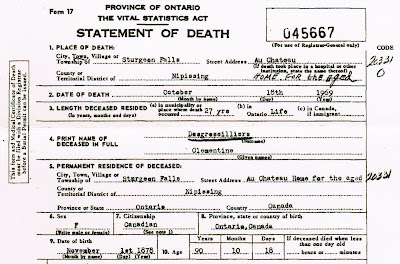 Form 17
PROVINCE OF ONTARIO
THE VITAL STATISTICS ACT
STATEMENT OF DEATH
045667
(For use of Registrar-General only)
1. PLACE OF DEATH:
CODE
City, Town, Village or Township of Sturgeon Falls Street Address Au Chateau
(If death took place in a hospital or other institution, state the name thereof)
20331
County or Territorial District of Nipissing HOME FOR the aged
0
2. DATE OF DEATH October 18th 1969
(Month by name) (Day) (Year)
3. LENGTH DECEASED RESIDED (In years, months and days) (a) in municipality or place where death occurred 27 yrs (b) in Ontario Life (c) in Canada, if immigrant
4. PRINT NAME OF DECEASED IN FULL
Desgroseilliers
(Surname)
Clementine
(Given names)
5. PERMANENT RESIDENCE OF DECEASED:
City, Town, Village or Township of Sturgeon Falls Street Address Au Chateau Home for the aged 20331
County or Territorial District of Nipissing
Province or State Ontario Country Canada
6. Sex 7. Citizenship 8. Province, state or country of birth
F Canadian Ontario, Canada
(Write male or female) (See note 1)
9. Date of birth Years Months Days If deceased died when less than one day old
November 1st 1878 10. Age 90 10 18 hours or minutes
(Month by name) (Day) (Year)
This form and Medical Certificate of Death must be filed with a Division Registrar before a Burial Permit can be issued.